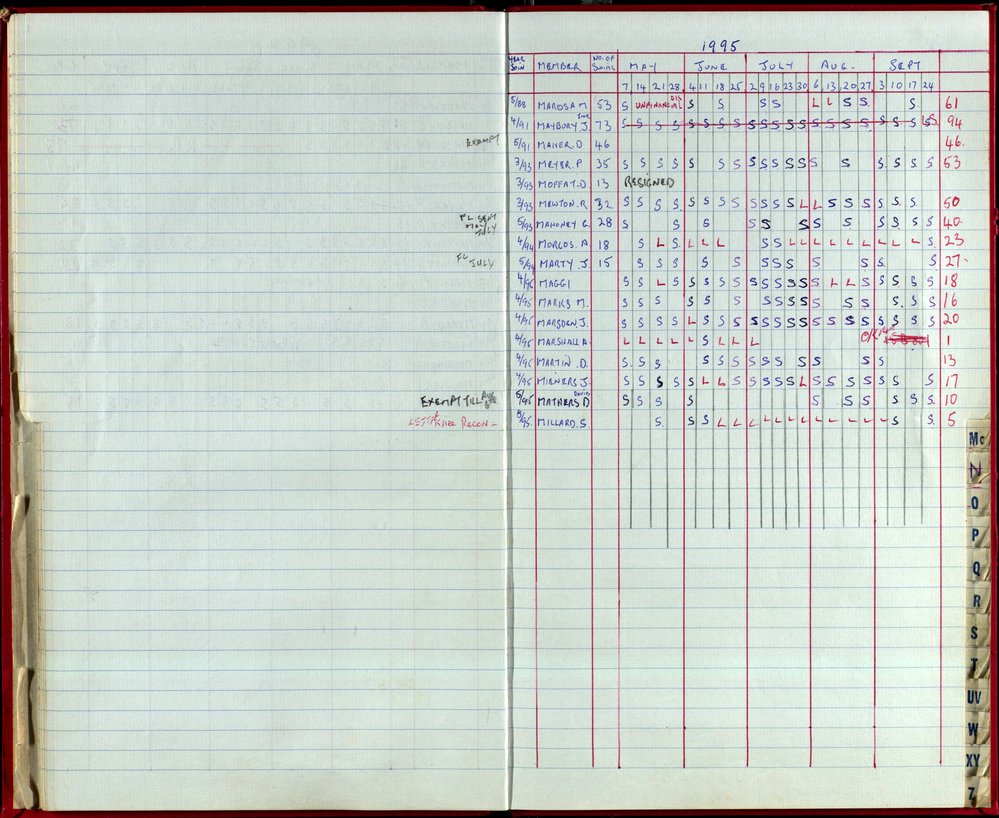 1995
YEAR JOIN MEMBER NO. OF SWIMS MAY JUNE JULY AUG. SEPT
7 14 21 28 4 11 18 25 2 9 16 23 30 6 13 20 27 3 10 17 24
5/88 MAROSA M 53 S UNFINANCIAL S S S S L L S S S 61
4/91 MAYBURY J. SNR 73 S S S S S S S S S S S S S S S S S S S S 94
EXEMPT 5/91 MAHER. D 46 46.
3/93 MEYER. P 35 S S S S S S S S S S S S S S S S S S 53
3/93 MOFFAT. D. 13 RESIGNED
3/93 MEWTON. R. 32 S S S S S S S S S S S S L L S S S S S S 50
FL SENT MAY JULY 5/93 MAHONEY G. 28 S S S S S S S S S S S S 40.
4/94 MORGOS. A 18 S L S L L L S S L L L L L L L L L S 23
FL JULY 5/94 MARTY J. 15 S S S S S S S S S S S S 27.
4/95 MAGGI S S L S S S S S S S S S S S L L S S S S S 18
4/95 MARKS M. S S S S S S S S S S S S S S S S 16
4/95 MARSDEN. J. S S S S L S S S S S S S S S S S S S S S S 20
4/95 MARSHALL A. L L L L L S L L L 1
4/95 MARTIN. D. S S S S S S S S S S S S S 13
4/95 MIENERS J. S S S S S L L S S S S S L S S S S S S S 17
EXEMPT TILL 5/95 MATHERS D DAVID S S S S S S S S S S 10
LETT KNEE RECON - 5/95 MILLARD. S. S S S L L L L L L L L L L L L S S 5
Mc
N
O
P
Q
R
S
T
UV
W
XY
Z